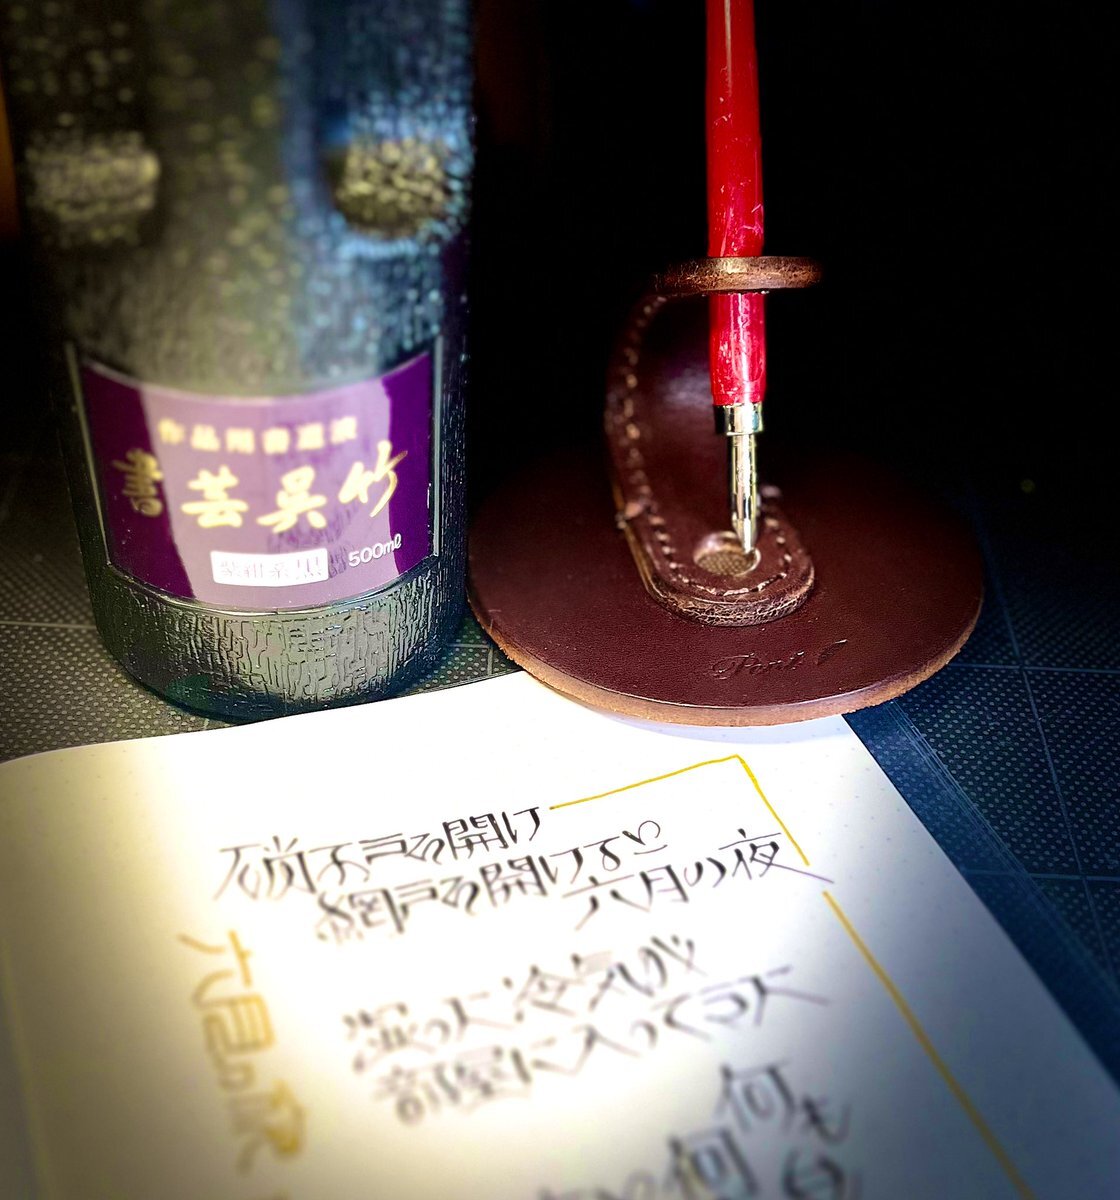 作品用書道液
書芸呉竹
紫紺系黒 500ml
Pent
硝子戸を開け
網戸を開けない
六月の夜
湿った冷気が
部屋に入って
何も
何
六月の夜